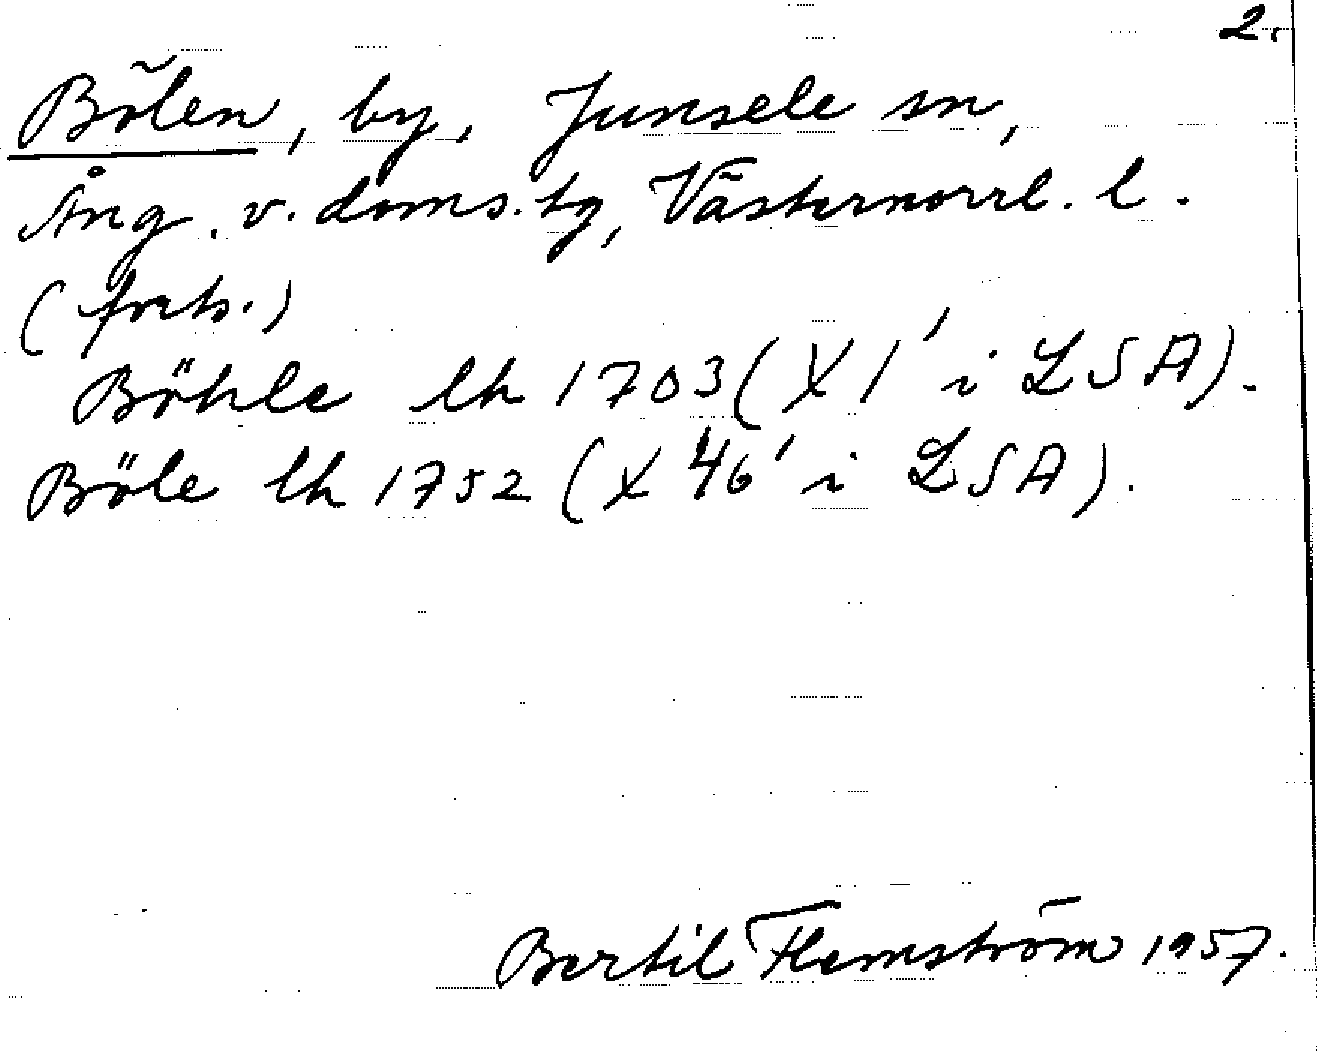 2.
Bölen, by, Junsele sn,
Ång. v. doms. tg, Västernorrl. l.
(forts.)
Böhle lh 1703 (X1' i LSA).
Böle lh 1752 (X 46' i LSA).
Bertil Flemström 1957.